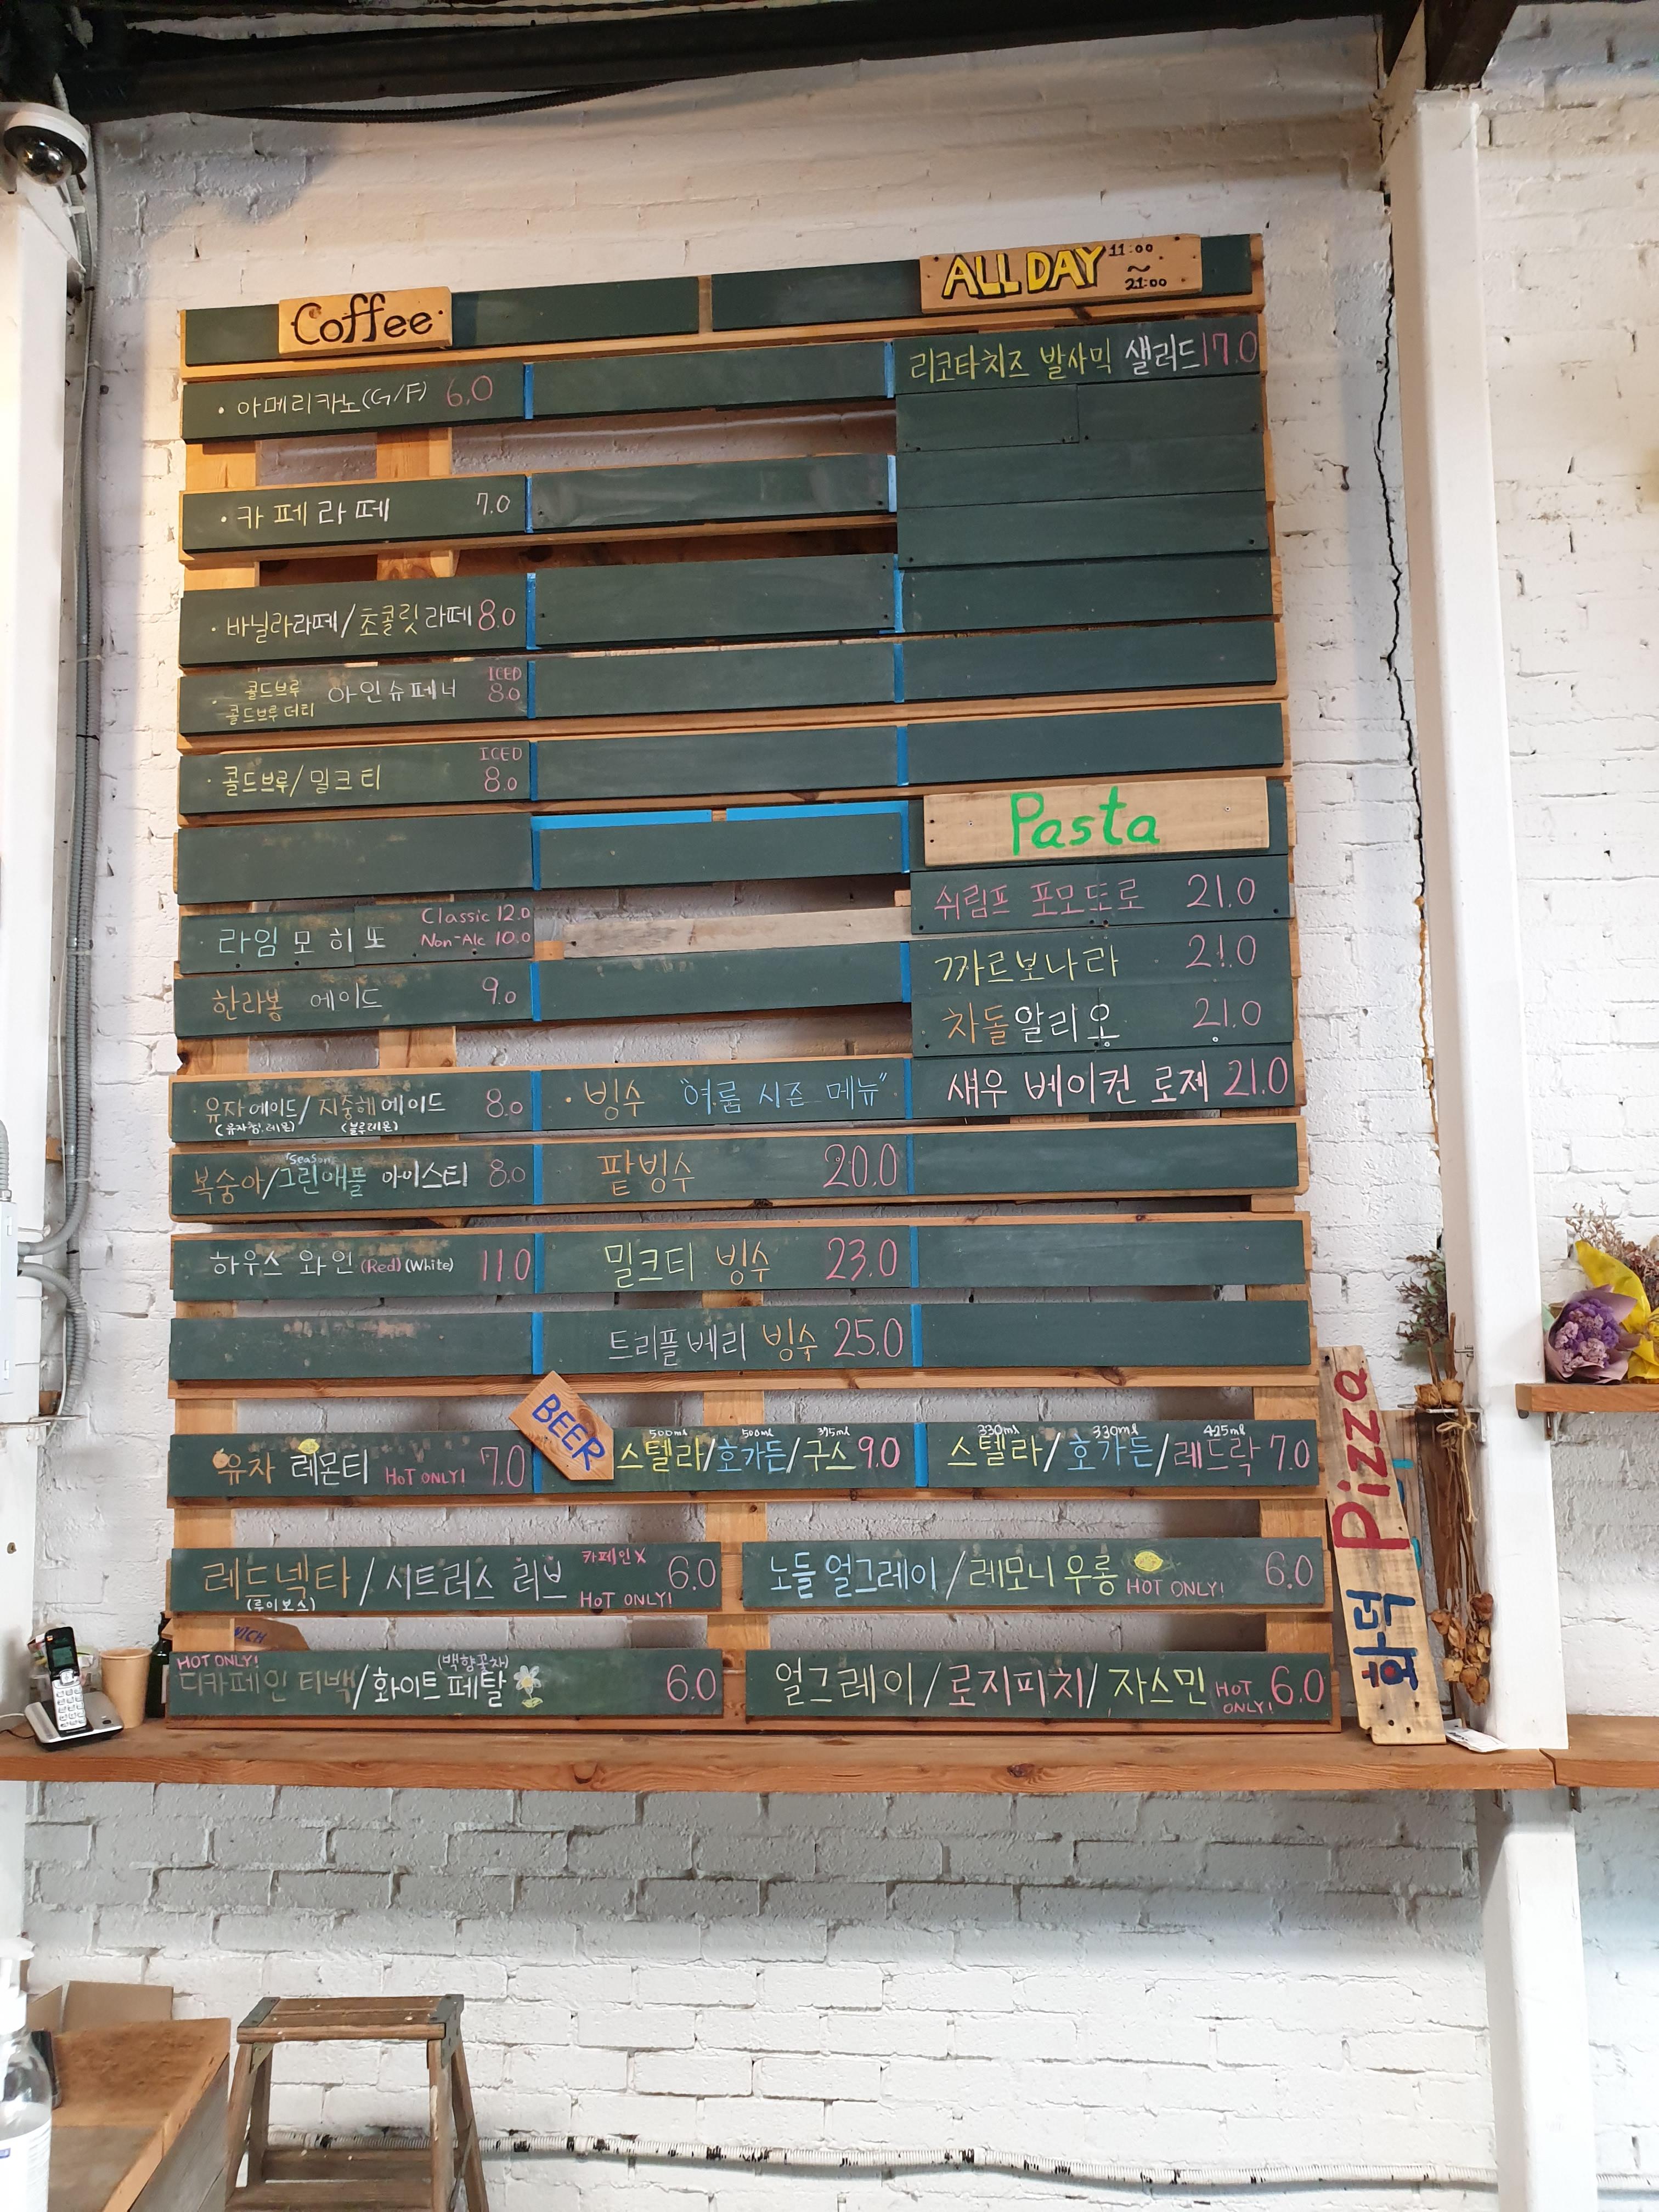 Coffee
· 아메리카노(G/F) 6.0
· 카페라떼 7.0
· 바닐라라떼/초콜릿라떼 8.0
· 콜드브루 콜드브루 더티 아인슈페너 ICED 8.0
· 콜드브루/밀크티 ICED 8.0
· 라임모히또 Classic 12.0 Non-Alc 10.0
한라봉 에이드 9.0
· 유자에이드/지중해에이드 8.0
(유자청, 레몬) (블루레몬)
복숭아/그린애플 아이스티 8.0
"season
하우스 와인 (Red) (White) 11.0
유자 레몬티 HOT ONLY! 7.0
· 빙수 "여름 시즌 메뉴"
팥빙수 20.0
밀크티 빙수 23.0
트리플베리 빙수 25.0
ALL DAY 11:00 ~ 21:00
리코타치즈 발사믹 샐러드 17.0
Pasta
쉬림프 포모도로 21.0
까르보나라 21.0
차돌알리오 21.0
새우 베이컨 로제 21.0
BEER
500ml 500ml 375ml
스텔라/호가든/구스 9.0
330ml 330ml 425ml
스텔라/호가든/레드락 7.0
레드넥타/시트러스 러브 카페인X HOT ONLY! 6.0
(루이보스)
노들 얼그레이/레모니 우롱 HOT ONLY! 6.0
HOT ONLY! (백향꽃차)
디카페인 티백/화이트 페탈 6.0
얼그레이/로지피치/자스민 HOT ONLY! 6.0
화덕 Pizza